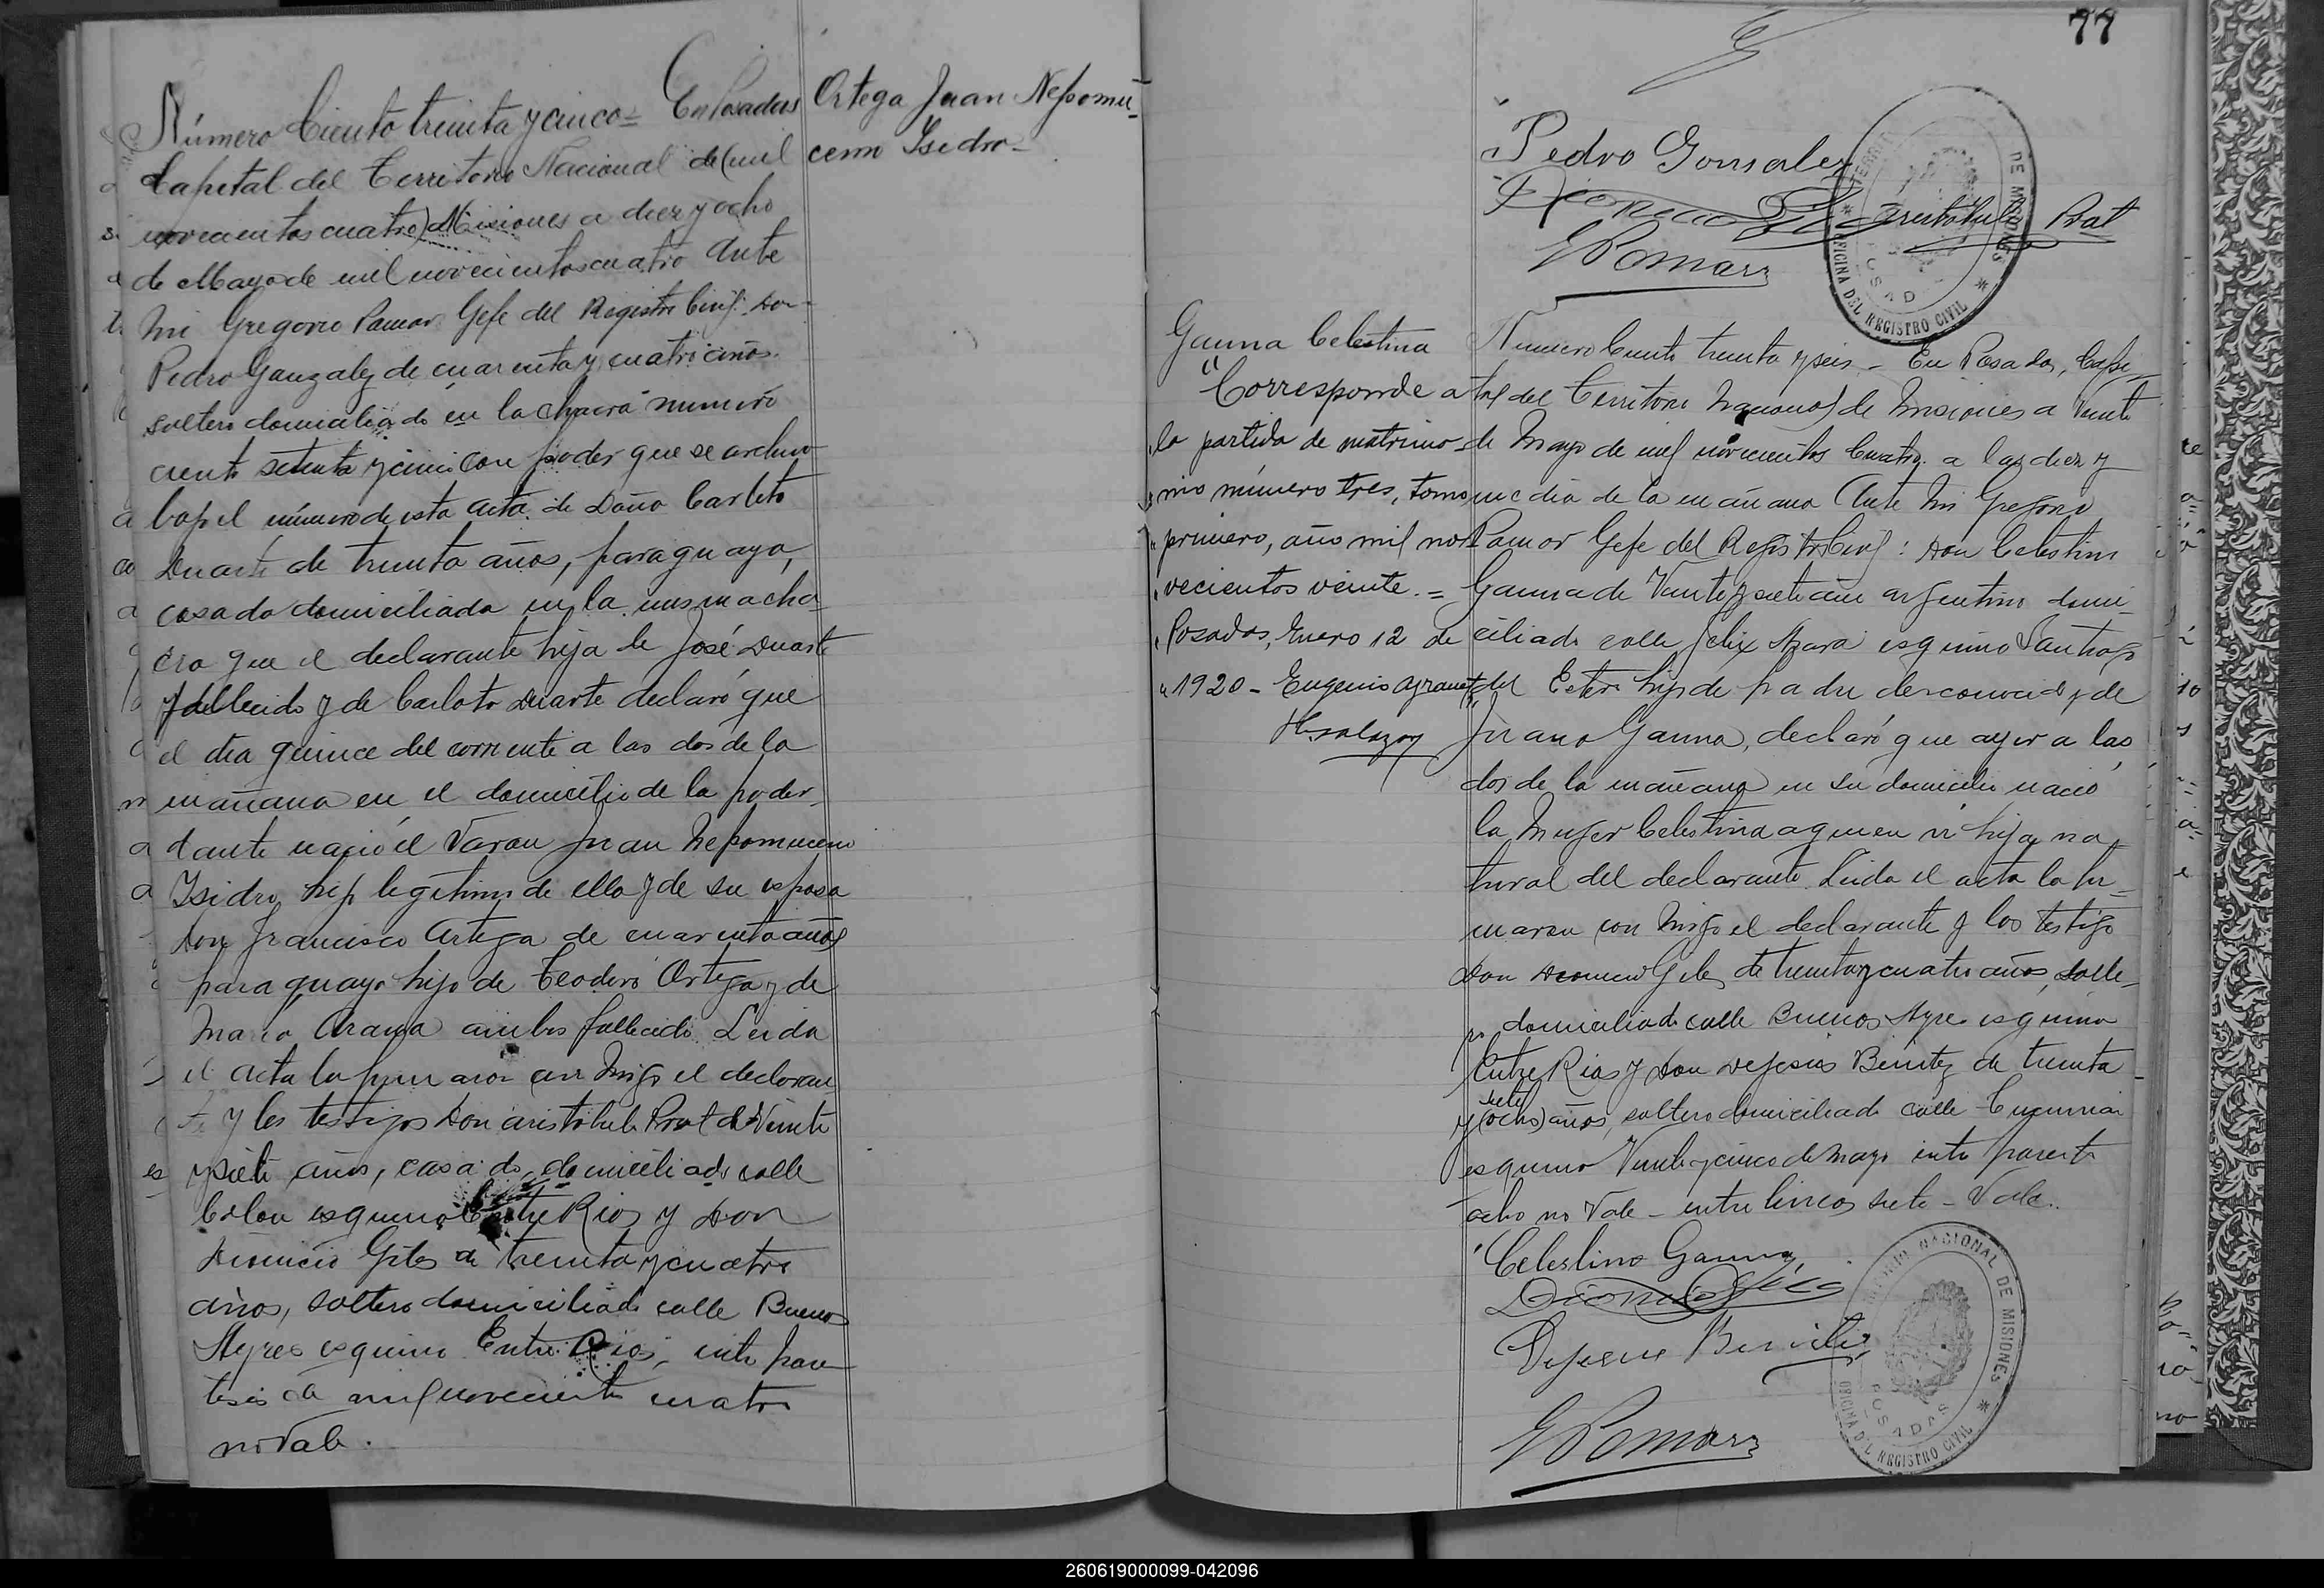 Número Ciento treinta y cinco = En Posadas
Capital del Territorio Nacional de (mil
novecientos cuatro) Misiones a diez y ocho
de Mayo de mil novecientos cuatro Ante
mi Gregorio Pomar Gefe del Registro Civil: Don
Pedro Gonzalez de cuarenta y cuatro años
soltero domiciliado en la chacra número
ciento setenta y cinco con poder que se archiva
bajo el número de esta acta de Doña Carlota
Duarte de treinta años, paraguaya,
casada domiciliada en la misma cha-
cra que el declarante hija de José Duarte
fallecido y de Carlota Duarte declaró que
el día quince del corriente a las dos de la
mañana en el domicilio de la poder-
dante nació el Varon Juan Nepomuceno
Isidro, hijo legítimo de ella y de su esposo
Don Francisco Ortega de cuarenta años
paraguayo hijo de Teodoro Ortega y de
Maria Arana ambos fallecidos. Leida
el acta la firmaron con migo el declaran
te y los testigos Don Aristobulo Prat de Veinte
y siete años, casado, domiciliado calle
Colon esquina Entre Rios y Don
Dionicio Giles de treinta y cuatro
años, soltero domiciliado calle Buenos
Ayres esquina Entre Rios, entre paren
tesis de mil novecientos cuatro
no vale.
Ortega Juan Nepomu-
ceno Isidro-
77
Pedro Gonsalez
Aristobulo Prat
GPomar
TERRITORIO
DE MISIONES
OFICINA DEL REGISTRO CIVIL
POSADAS
Gauna Celestina
"Corresponde a
"la partida de matrimo-
"nio número tres, tomo
"primero, año mil no-
"vecientos veinte. =
"Posadas, Enero 12 de
"1920 - Eugenio
Numero Ciento treinta y seis - En Posadas, Capi-
tal del Territorio Nacional de Misiones a Veinte
de Mayo de mil novecientos Cuatro a las diez y
media de la mañana Ante mi Gregorio
Pomar Gefe del Registro Civil: Don Celestino
Gauna de Veinte y siete años argentino domi-
ciliado calle Felix Azara esquina Santiago
del Estero hijo de padre desconocido y de
Juana Gauna, declaró que ayer a las
dos de la mañana en su domicilio nació
la Muger Celestina a quien vi hija na-
tural del declarante. Leida el acta la fir-
maron con migo el declarante y los testigos
Don Dionicio Giles de treinta y cuatro años, solte-
ro domiciliado calle Buenos Ayres esquina
Entre Rios y Don Dejesús Benitez de treinta
siete
y (ocho) años, soltero domiciliado calle Tucuman
esquina Veinte y cinco de Mayo entre parent
ocho no Vale - entre lineas siete - Vale.
Celestino Gauna
Dionicio Giles
Dejesus Benitez
GPomar
TERRITORIO NACIONAL DE MISIONES
OFICINA DEL REGISTRO CIVIL
POSADAS
260619000099-042096